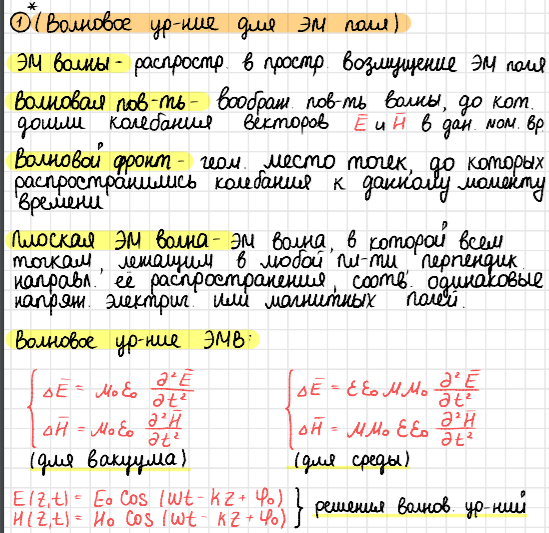 ①* (Волновое ур-ние для ЭМ поля)
ЭМ волны - распростр. в простр. возмущение ЭМ поля
Волновая пов-ть - воображ. пов-ть волны, до кот.
дошли колебания векторов E̅ и H̅ в дан. мом. вр.
Волновой фронт - геом. место точек, до которых
распространились колебания к данному моменту
времени
Плоская ЭМ волна - ЭМ волна, в которой всем
точкам, лежащим в любой пл-ти перпендик.
направл. её распространения, соотв. одинаковые
напряж. электрич. или магнитных полей.
Волновое ур-ние ЭМВ:
{ ΔE̅ = μ₀ε₀ ∂²E̅/∂t² { ΔE̅ = εε₀μμ₀ ∂²E̅/∂t²
ΔH̅ = μ₀ε₀ ∂²H̅/∂t² ΔH̅ = μμ₀εε₀ ∂²H̅/∂t²
(для вакуума) (для среды)
E(z,t) = E₀ cos (ωt - kz + φ₀) } решения волнов. ур-ний
H(z,t) = H₀ cos (ωt - kz + φ₀)